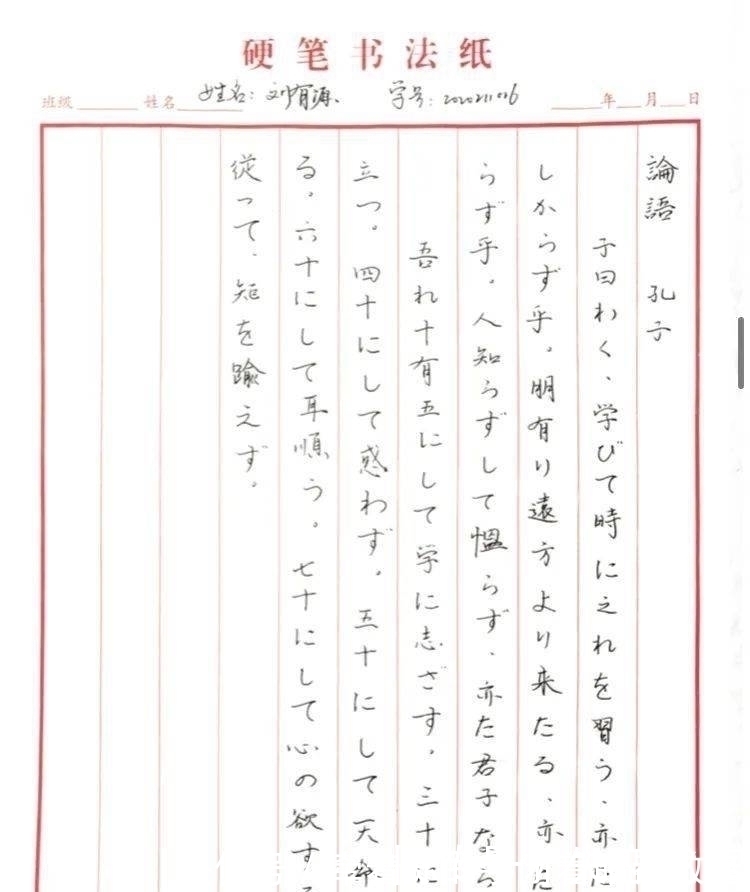 硬笔书法纸
班级 姓名 姓名: 学号: 年 月 日
論語 孔子
子曰わく、学びて時に之れを習う、亦
しからず乎。朋有り遠方より来たる、亦た
らず乎。人知らずして慍らず、亦た君子なら
吾れ十有五にして学に志ざす。三十に
立つ。四十にして惑わず。五十にして天命
る。六十にして耳順う。七十にして心の欲する
従って、矩を踰えず。